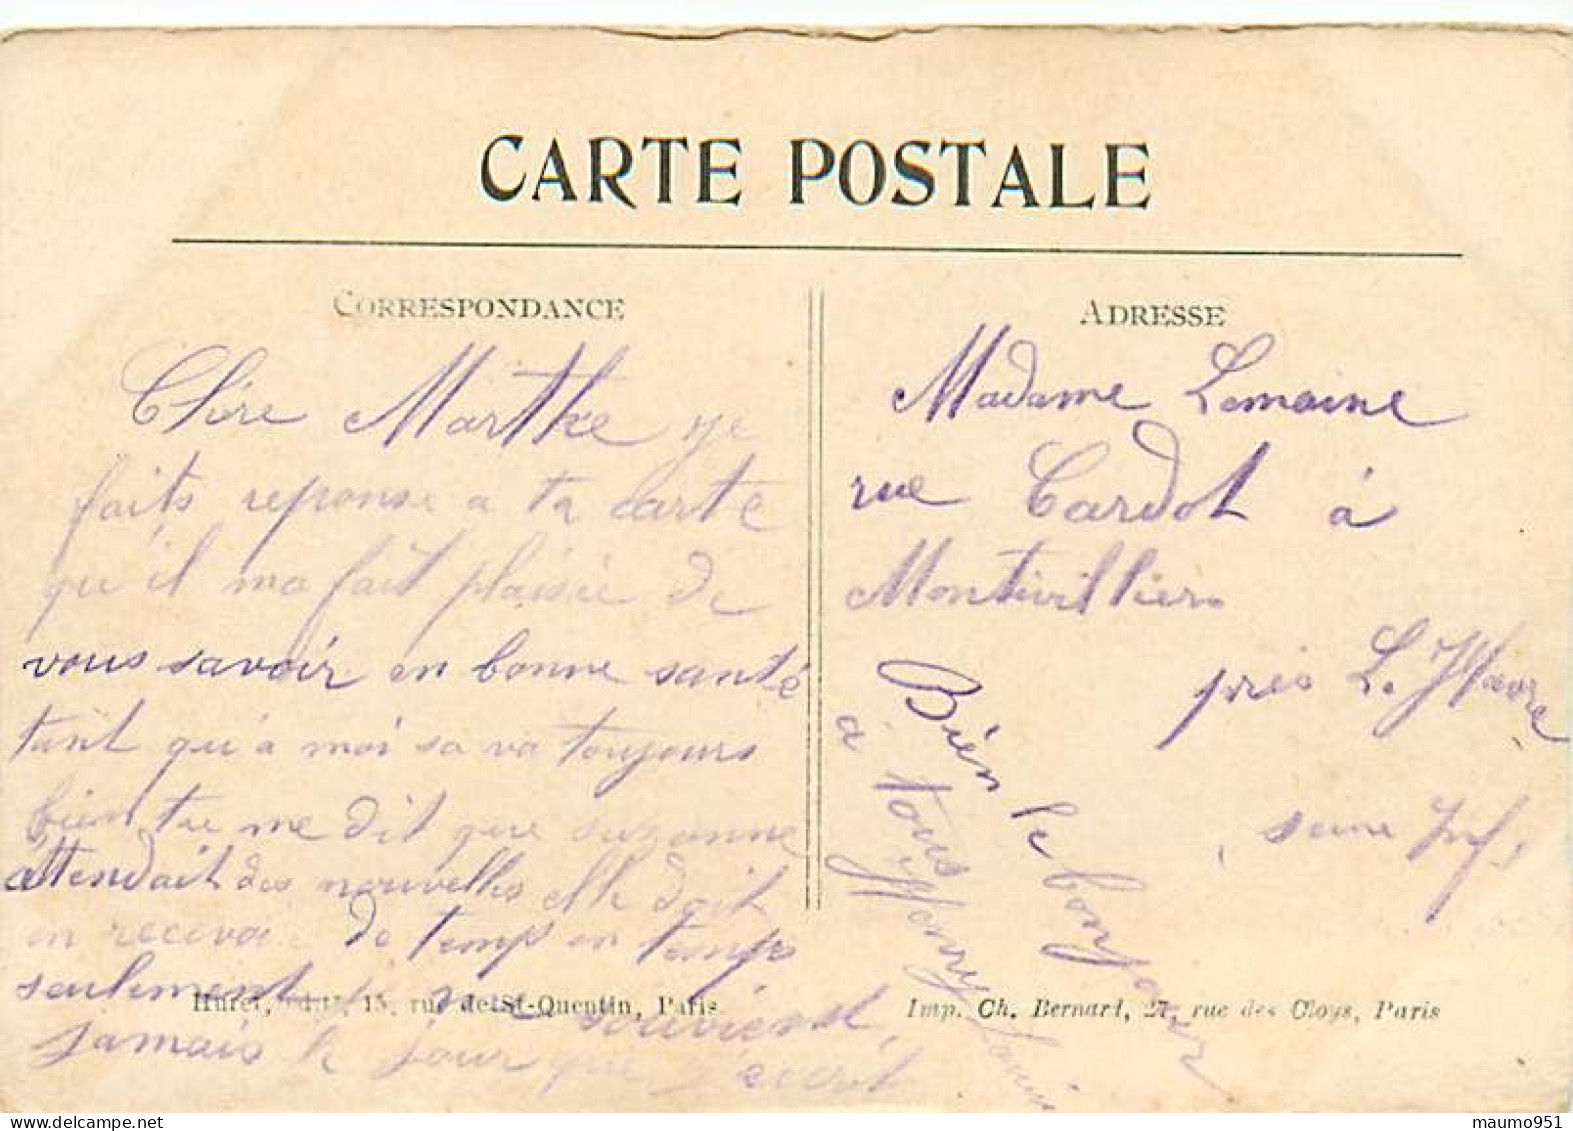 CARTE POSTALE
CORRESPONDANCE
Chère Marthe je
faits reponse a ta carte
qu'il ma fait plaisie de
vous savoir en bonne santé
tant qu'a moi sa va toujours
bien tu me dit que suzanne
attendait des nouvelles elle doit
en recevoir de temp en temps
seulement je me souvient
jamais le jour que j'ecrit
Huret, édit, 15, rue de St-Quentin, Paris
ADRESSE
Madame Lemaine
rue Cardot à
Montivilliers
près Le Havre
seine Inf.
Bien le bonjour
a tous Henry Louis
Imp. Ch. Bernart, 27, rue des Cloys, Paris
maumo951